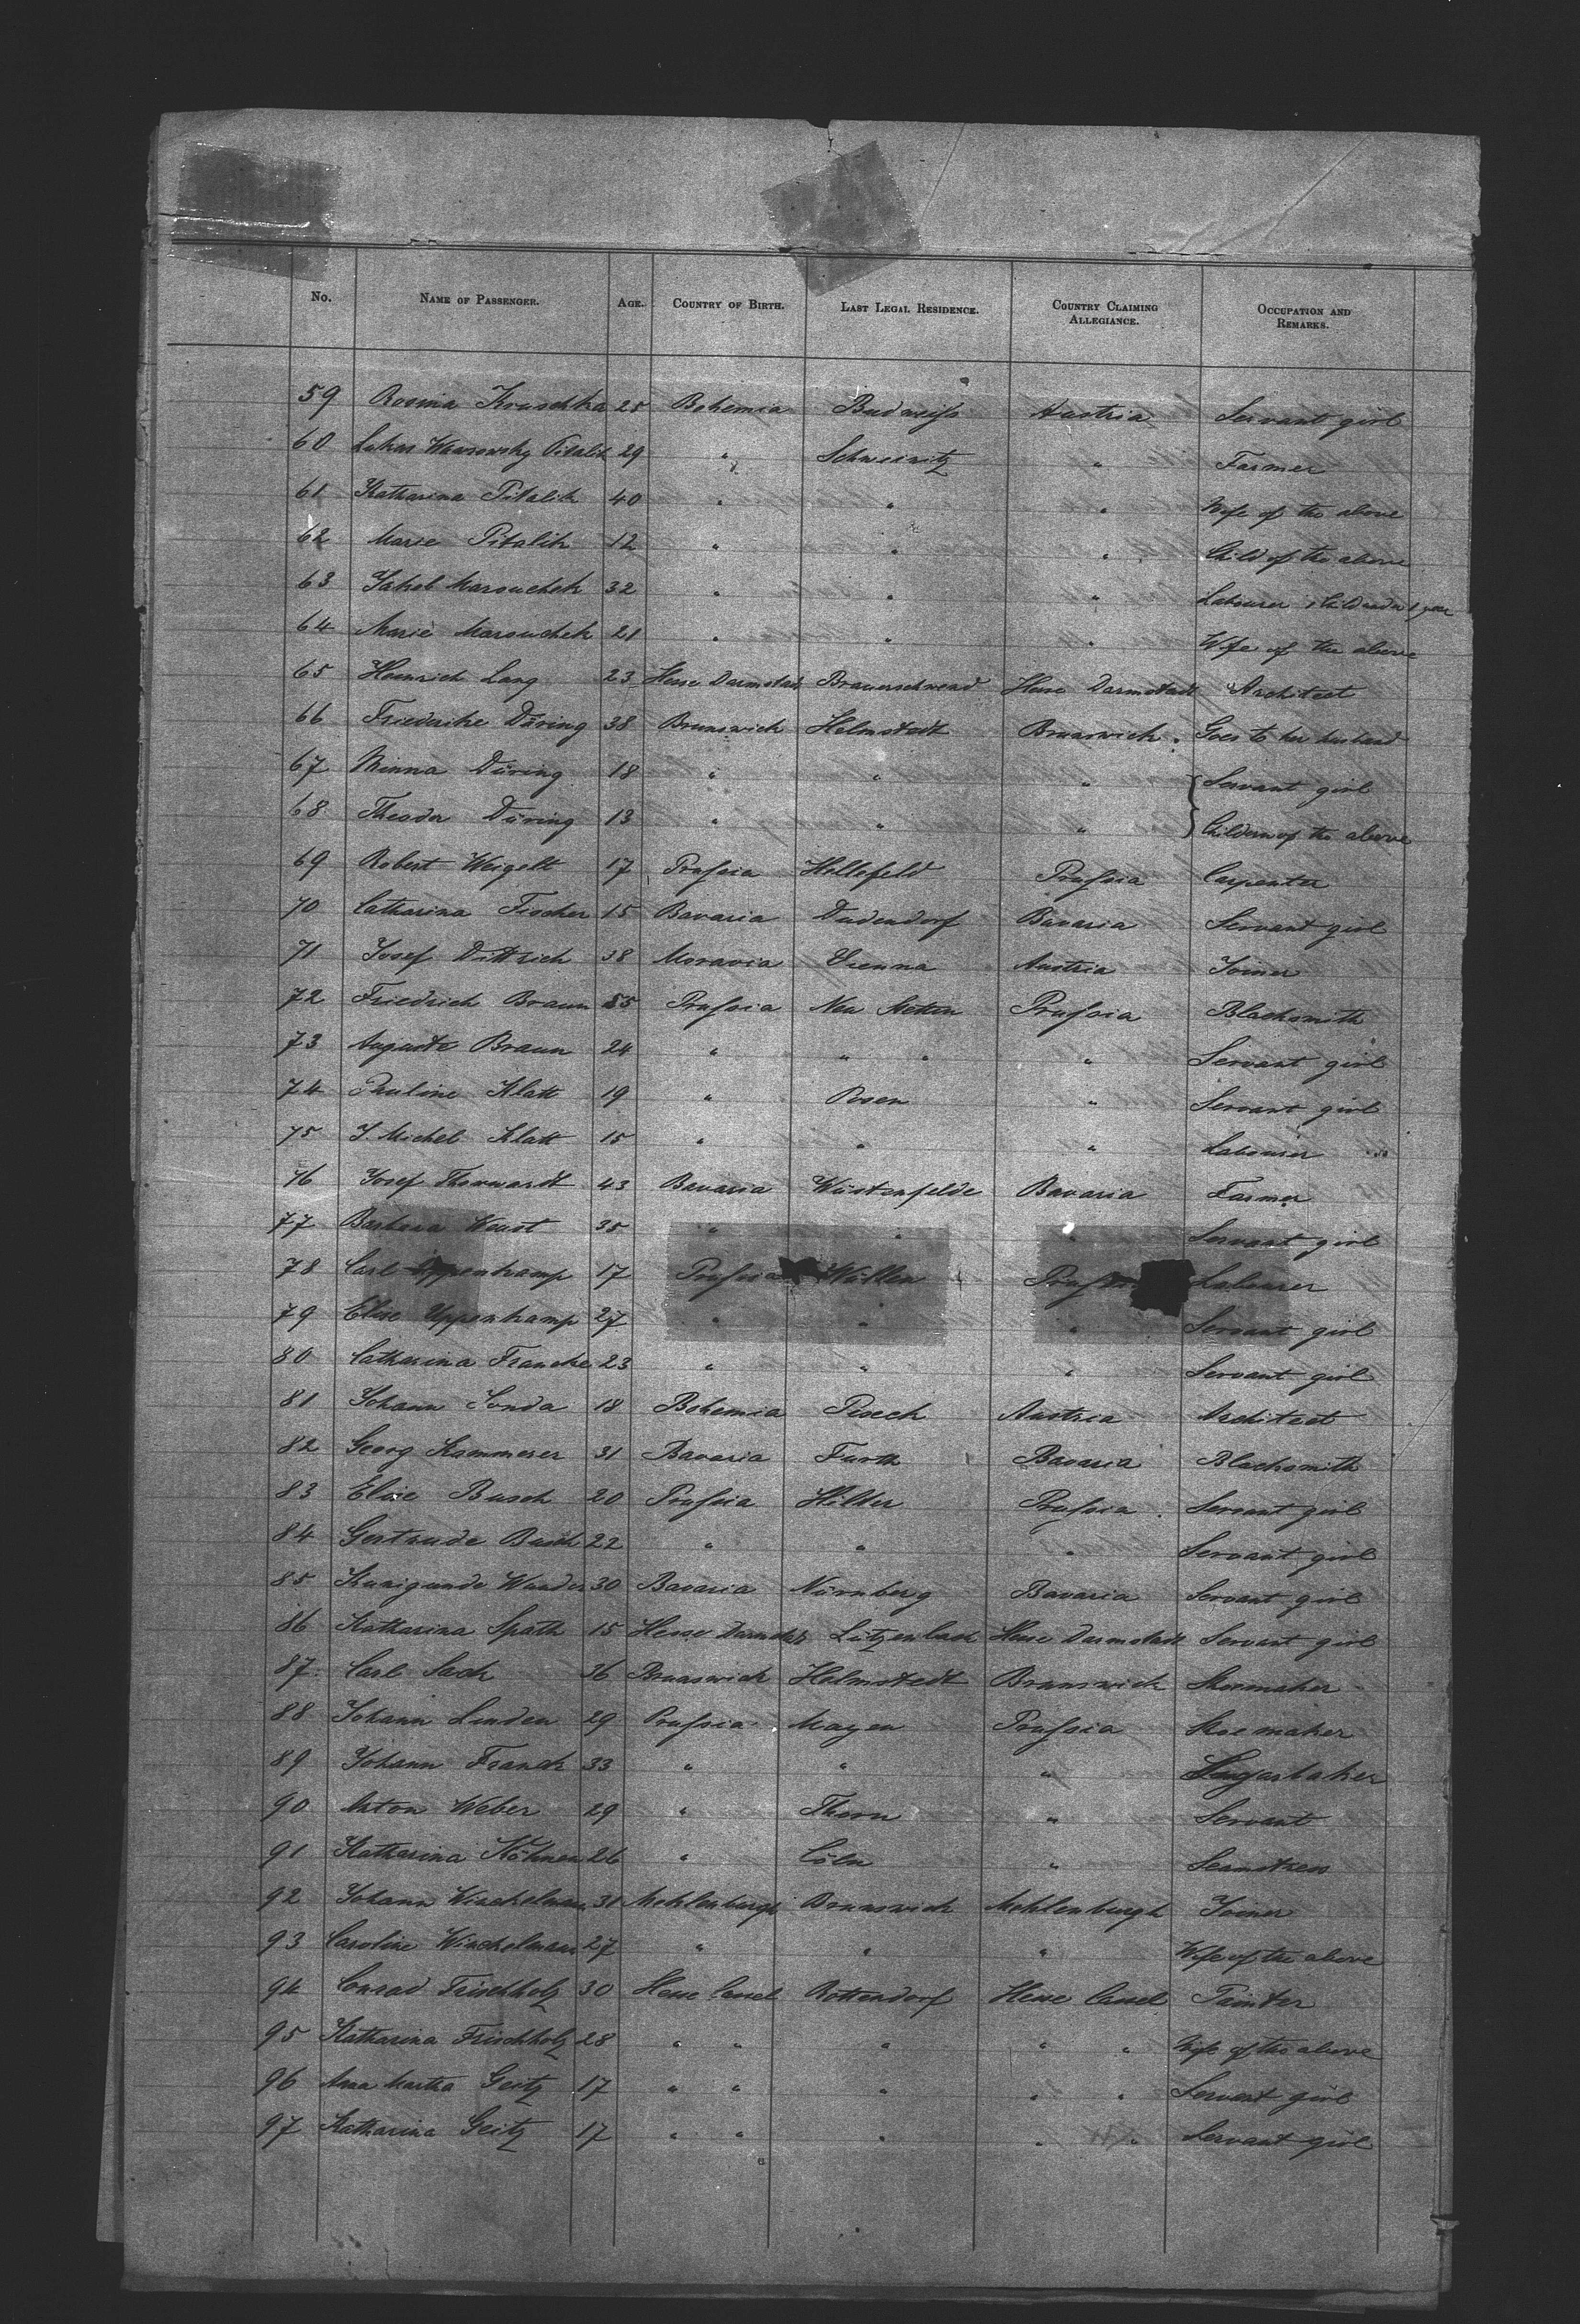 No. NAME OF PASSENGER. AGE. COUNTRY OF BIRTH. LAST LEGAL RESIDENCE. COUNTRY CLAIMING ALLEGIANCE. OCCUPATION AND REMARKS.
59 Rosina Kruschka 25 Bohemia Budweiss Austria Servant girl
60 Lukas Pitalik 29 " Schweinitz " Farmer
61 Katharina Pitalik 40 " " " Wife of the above
62 Marie Pitalik 12 " " " Child of the above
63 Jakob Marouchek 32 " " " Labourer 1 Child under 1 year
64 Marie Marouchek 21 " " " Wife of the above
65 Heinrich Lang 23 Hesse Darmstadt Brauerschwend Hesse Darmstadt Architect
66 Friedricke Düring 38 Brunswick Helmstedt Brunswick Goes to her husband
67 Minna Düring 18 " " " Servant girl
68 Theodor Düring 13 " " " Children of the above
69 Robert Weigelt 17 Prussia Hellefeld Prussia Carpenter
70 Catharina Fischer 15 Bavaria Dudendorf Bavaria Servant girl
71 Josef Dittrich 38 Moravia Vienna Austria Joiner
72 Friedrich Braun 55 Prussia Neu Stettin Prussia Blacksmith
73 Auguste Braun 24 " " " " Servant girl
74 Pauline Klatt 19 " Posen " Servant girl
75 J. Michel Klatt 15 " " " Labourer
76 Josef Thorwardt 43 Bavaria Wüstenfelde Bavaria Farmer
77 Barbara Wenst 35 " " " Servant girl
78 Carl Uppenkamp 17 Prussia Wüllen Prussia Labourer
79 Elise Uppenkamp 27 " " " Servant girl
80 Catharina Francke 23 " " " Servant girl
81 Johann Sonda 18 Bohemia Piseck Austria Architect
82 Georg Kammerer 31 Bavaria Furth Bavaria Blacksmith
83 Elise Busch 20 Prussia Hilter Prussia Servant girl
84 Gertrude Busch 22 " " " Servant girl
85 Kunigunde Wunder 30 Bavaria Nürnberg Bavaria Servant girl
86 Katharina Späth 15 Hesse Darmstadt Lützenbach Hesse Darmstadt Servant girl
87 Carl Sack 36 Brunswick Helmstedt Brunswick Shoemaker
88 Johann Linden 29 Prussia Mayen Prussia Shoemaker
89 Johann Franck 33 " " "
90 Anton Weber 29 " Thorn " Servant
91 Katharina Köhnen 26 " Cöln " Seamstress
92 Johann Winckelmann 31 Mecklenburgh Brunswick Mecklenburgh Joiner
93 Caroline Winckelmann 27 " " " Wife of the above
94 Conrad Frischholz 30 Hesse Cassel Rottendorf Hesse Cassel Painter
95 Katharina Frischholz 28 " " " " " Wife of the above
96 Anna Martha Geitz 17 " " " " " Servant girl
97 Katharina Geitz 17 " " " " " Servant girl